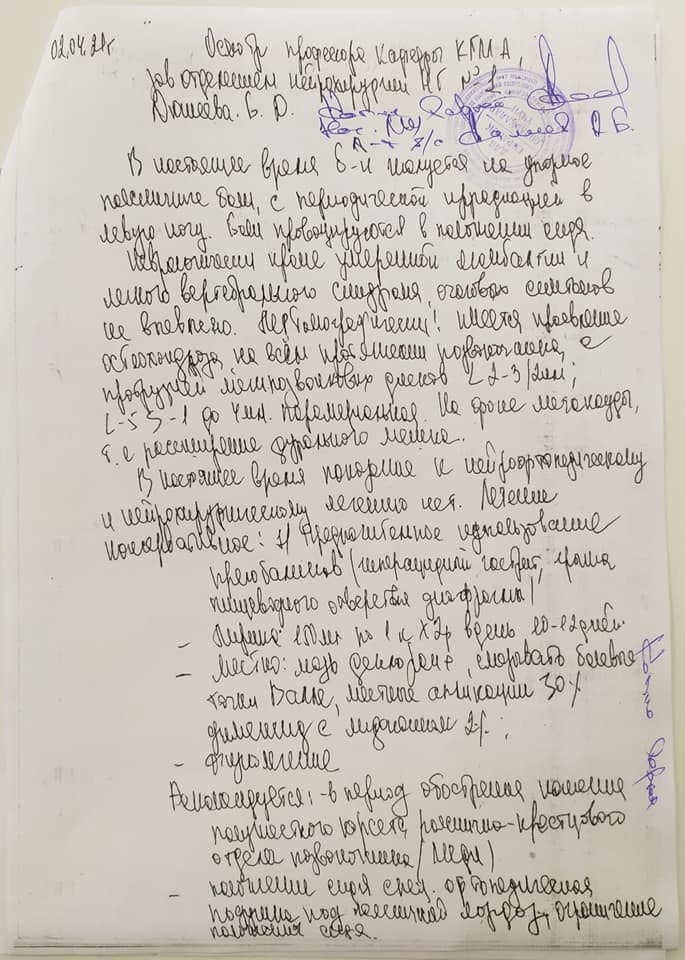 02.04.21г Осмотр профессора кафедры КГМА,
зав отделением нейрохирургии НГ №1
Дюшеева. Б. Д.
В настоящее время б-й жалуется на упорные
поясничные боли, с периодической иррадиацией в
левую ногу. Боли провоцируются в положении сидя.
Неврологически кроме умеренной люмбалгии и
легкого вертебрального синдрома, очаговых симптомов
не выявлено. имеется проявление
остеохондроза на всём протяжении позвоночника, с
протрузией межпозвонковых дисков L2-3/2мм;
L-5 S-1 до 4мм. парамедианная. На фоне
т.е расширение дурального мешка.
В настоящее время показание к нейроортопедическому
и нейрохирургическому лечению нет. Лечение
консервативное: 1) Предпочтенное использование
(гастрит, грыжа
пищеводного отверстия диафрагмы)
- Лирика 150мг по 1 к х 2р в день 10-12 дней.
- Местно: мазь смазывать болевые
точки Валле, местные апликации 30%
димексид с лидокаином 2%;
- физиолечение
Рекомендуется: - в период обострения, ношение
полужесткого корсета пояснично-крестцового
отдела позвоночника
- положение сидя спец. ортопедическая
подушка под поясничный лордоз, ограничение
положения сидя.